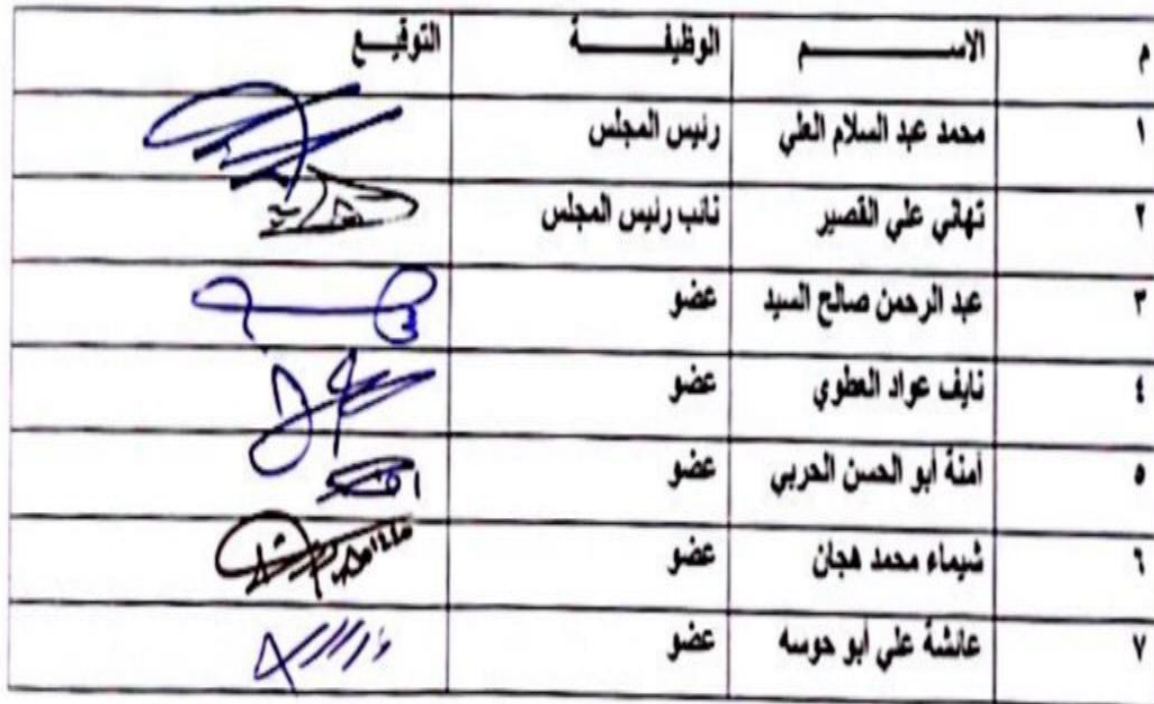 م الاســـــــــم الوظيفـــــــة التوقيـــع
١ محمد عبد السلام العلي رئيس المجلس
٢ تهاني علي القصير نائب رئيس المجلس
٣ عبد الرحمن صالح السيد عضو
٤ نايف عواد العطوي عضو
٥ آمنة أبو الحسن الحربي عضو
٦ شيماء محمد هجان عضو
٧ عائشة علي أبو حوسه عضو